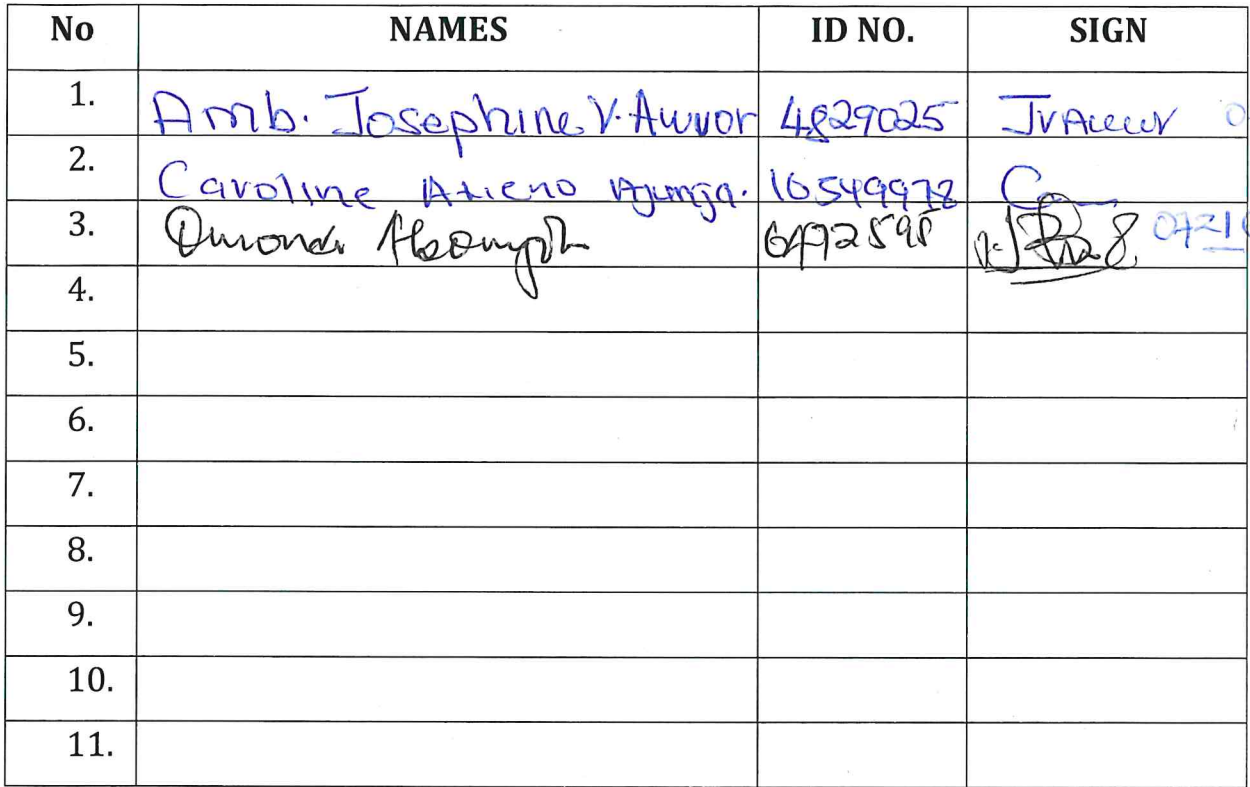 No NAMES ID NO. SIGN
1. Amb. Josephine V. Awuor 4829025 JVAwuor
2. Caroline Atieno Ajunja. 10549978
3. Omondi 6472595 0721
4.
5.
6.
7.
8.
9.
10.
11.